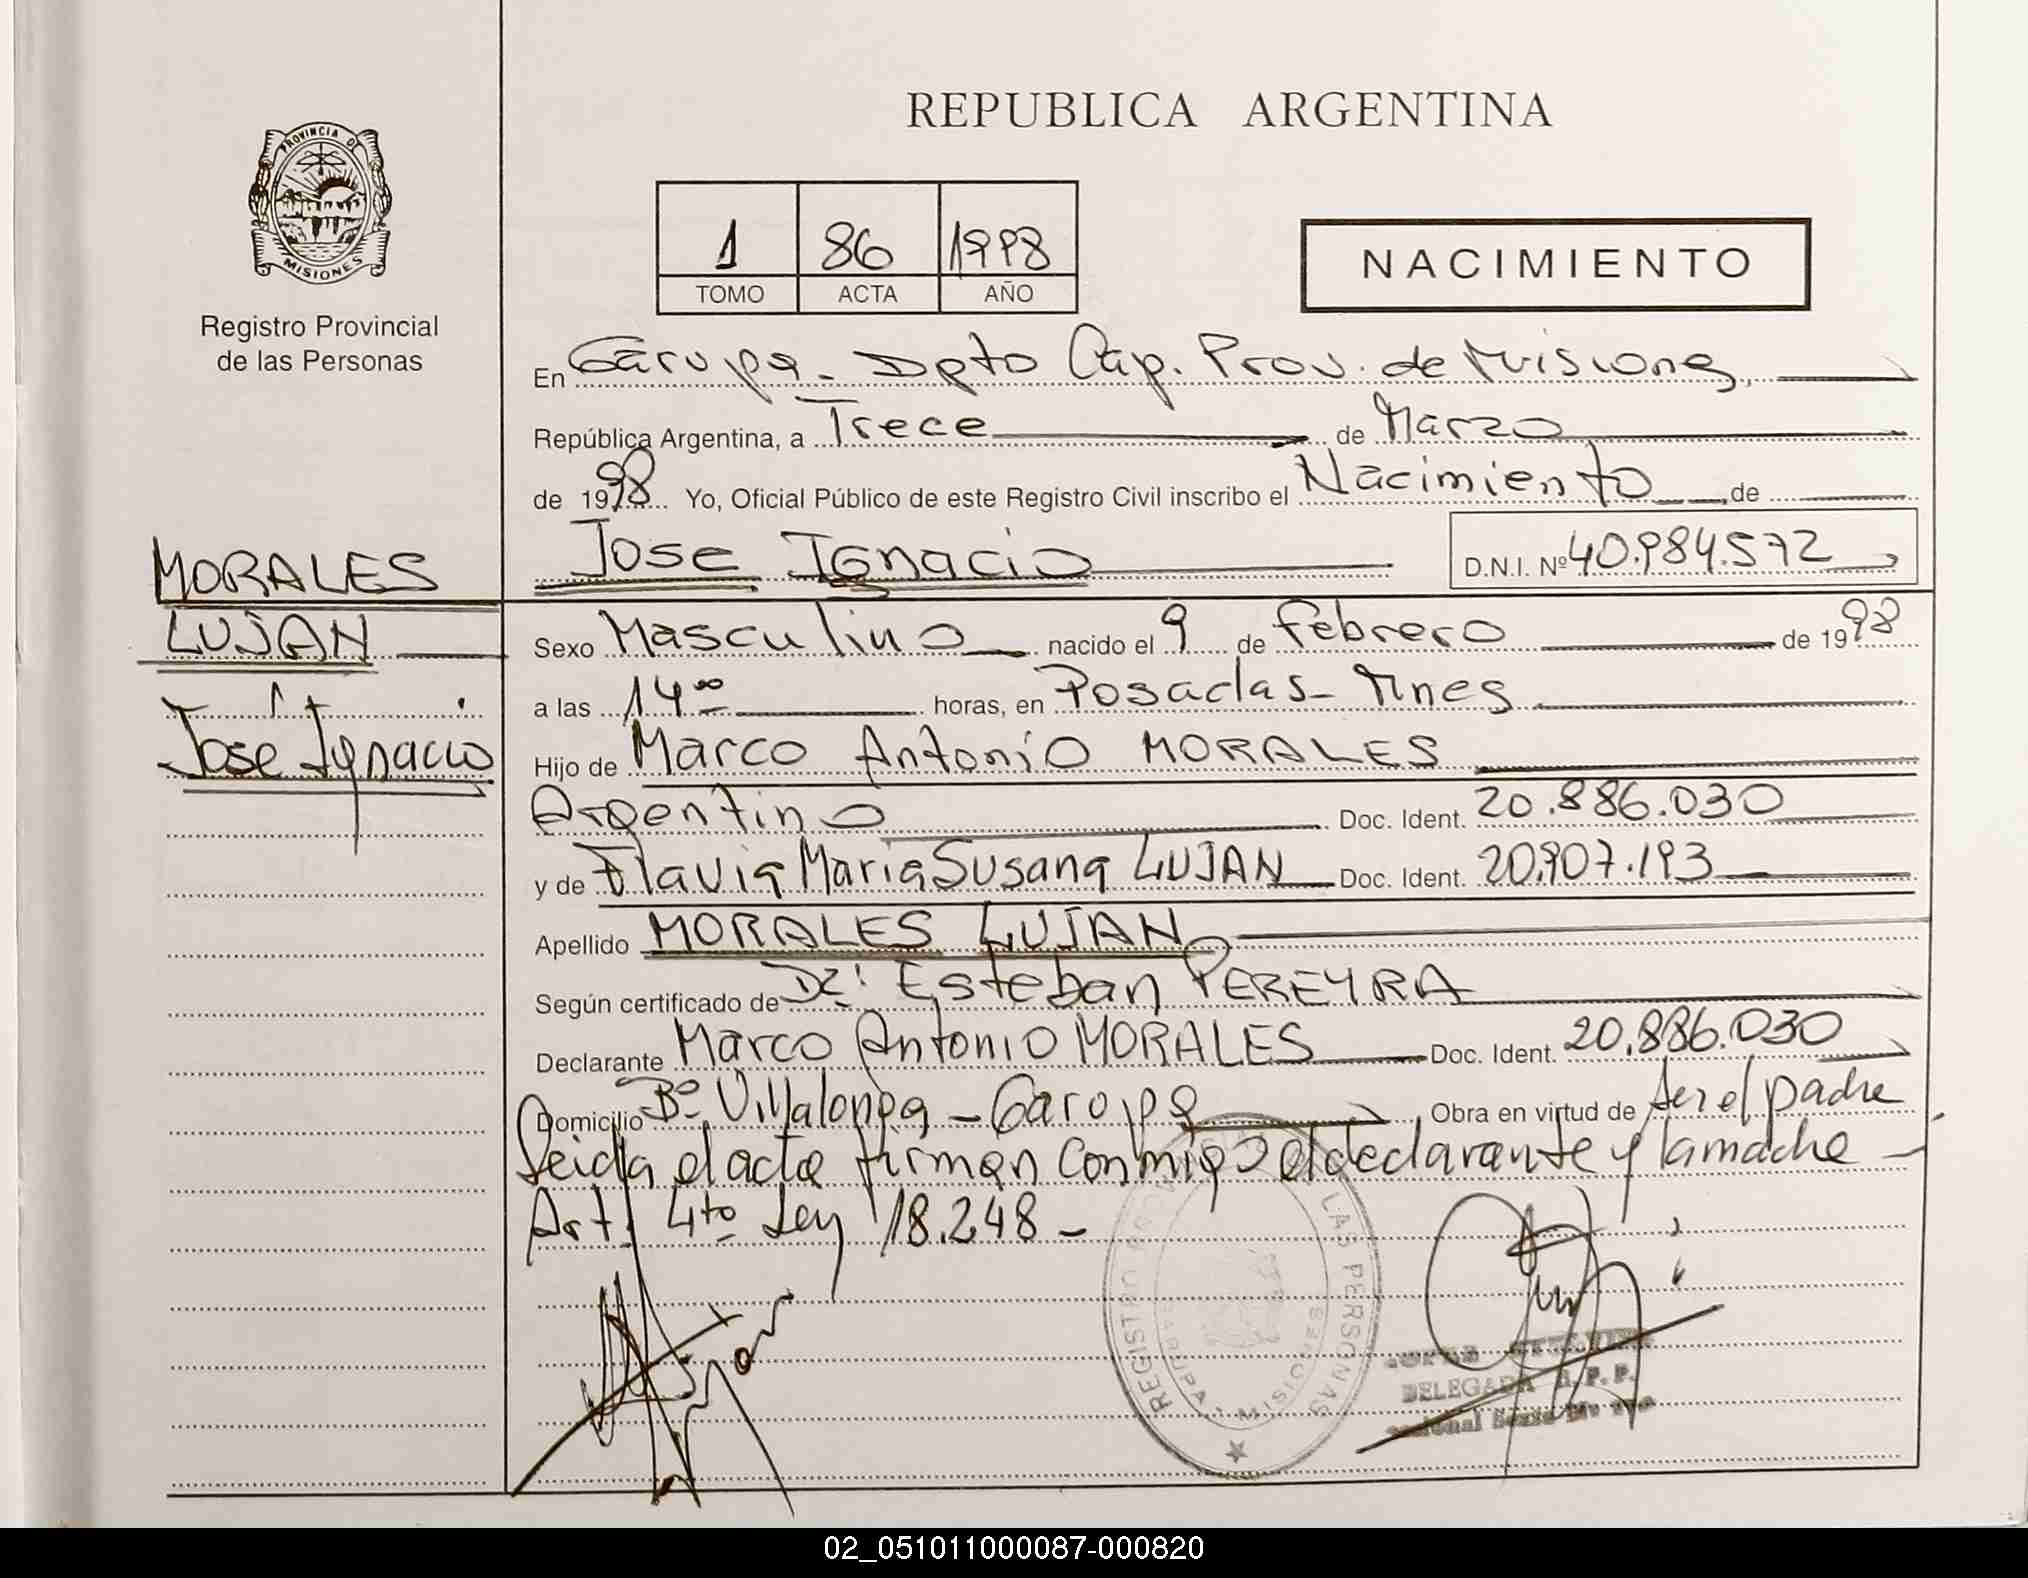 REPUBLICA ARGENTINA
PROVINCIA DE
MISIONES
Registro Provincial
de las Personas
1 86 1998
TOMO ACTA AÑO
NACIMIENTO
En Garupa - Dpto Cap. Prov. de Misiones,
República Argentina, a Trece de Marzo
de 1998 Yo, Oficial Público de este Registro Civil inscribo el Nacimiento, de
Jose Ignacio D.N.I. Nº 40.984.572
MORALES
LUJAN
José Ignacio
Sexo Masculino nacido el 9 de febrero de 1998
a las 14 oo horas, en Posadas - Mnes
Hijo de Marco Antonio MORALES
Argentino Doc. Ident. 20.886.030
y de Flavia Maria Susana LUJAN Doc. Ident. 20.907.193
Apellido MORALES LUJAN
Según certificado de Dr. Esteban PEREYRA
Declarante Marco Antonio MORALES Doc. Ident. 20.886.030
Domicilio Bº Villalonga - Garupa, Obra en virtud de ser el padre
Leida el acta firman conmigo el declarante y la madre -
Art. 4to Ley 18.248 -
REGISTRO LAS PERSONAS
MISIONES
DELEGADA R. P. P.